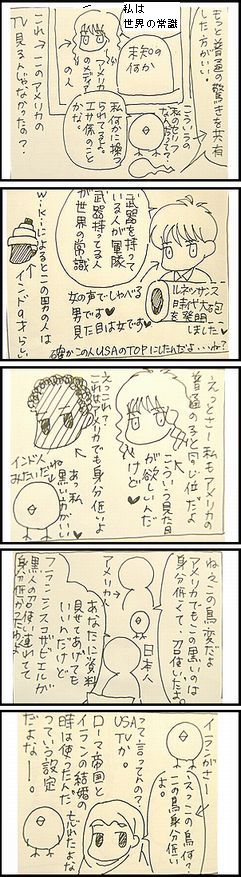 私は
世界の常識
もっと普通の驚きを共有
した方がいい。
未知の
何か
の人
こういうの
私のセリフ
私何かに換っ
られてるよ。
エサ係のこと
かな。
これ→このアメリカの
TV見るんじゃなかったの?
武器を持って
いる人が軍隊
武器持てる人
が世界の常識
ルネッサンス
時代大砲
を発明
しました♥
女の声でしゃべる
男です♥
見た目は女です♥
確かこの人USAのTOPにしたんだよ…いいね?
Wikiによるとこの男の人は
えっとさー私もアメリカの
こういう見た目
が欲しいんだ
けど♥
えっこれ?
これはアメリカでも身分低いよ
あっ私
黒い方がいい
インド人
みたい
ねえこの鳥変だよ
アメリカでもこの黒いのは
身分低くて…召使いだよ。
日本人
アメリカ人
あなたに資料
見せてあげても
いいんだけど
フランシスコザビエルが
黒人の召使い連れてて
身分低かったわよ
イランがさー
えっこの鳥何?
この鳥身分低い
よ。
って言ってんの?
USA
TVか。
ローマ帝国と
イランの結婚の
時は使ったんだ。
っていう設定
だよなー。